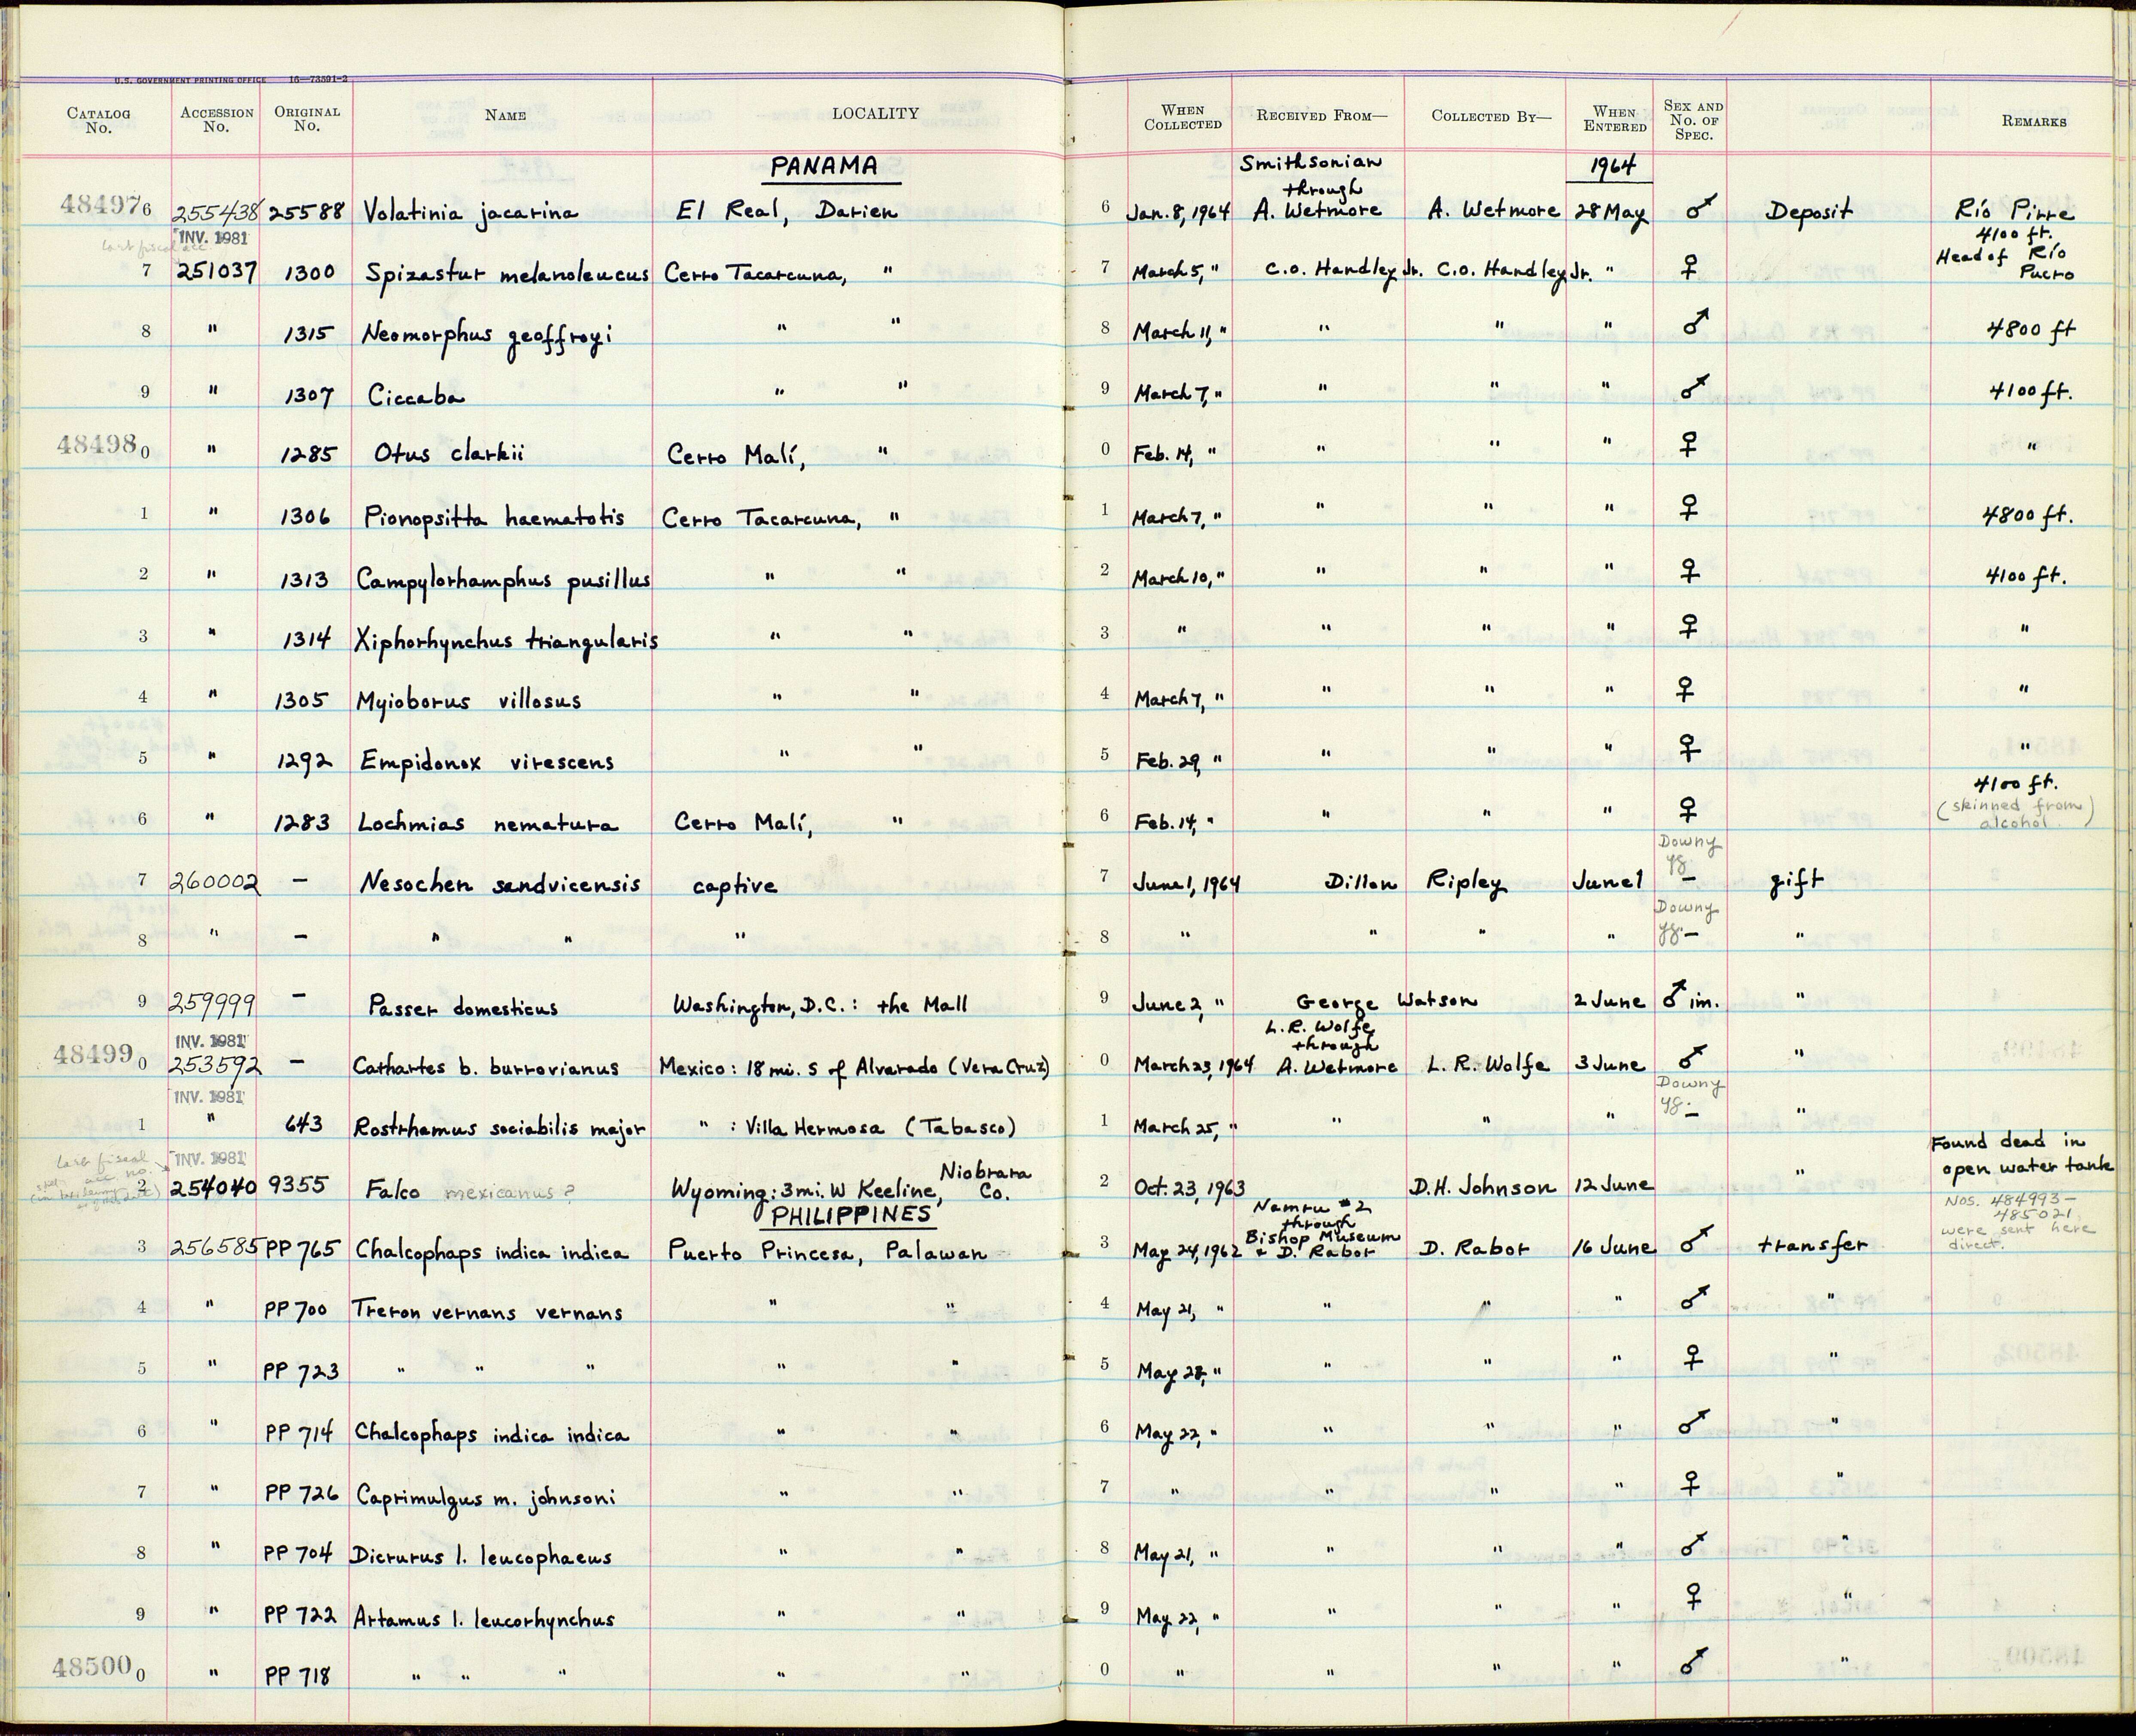 U.S. GOVERNMENT PRINTING OFFICE 16—73591-2
CATALOG No. ACCESSION No. ORIGINAL No. NAME LOCALITY WHEN COLLECTED RECEIVED FROM— COLLECTED BY— WHEN ENTERED SEX AND No. OF SPEC. REMARKS
PANAMA Smithsonian through 1964
484976 255438 25588 Volatinia jacarina El Real, Darien 6 Jan. 8, 1964 A. Wetmore A. Wetmore 28 May ♂ Deposit Río Pirre
INV. 1981 4100 ft.
last fiscal acc.
7 251037 1300 Spizastur melanoleucus Cerro Tacarcuna, " 7 March 5, " C.O. Handley Jr. C.O. Handley Jr. " ♀ Head of Río Pucro
8 " 1315 Neomorphus geoffroyi " " 8 March 11, " " " " ♂ 4800 ft
9 " 1307 Ciccaba " " 9 March 7, " " " " ♂ 4100 ft.
484980 " 1285 Otus clarkii Cerro Malí, " 0 Feb. 14, " " " " ♀ "
1 " 1306 Pionopsitta haematotis Cerro Tacarcuna, " 1 March 7, " " " " ♀ 4800 ft.
2 " 1313 Campylorhamphus pusillus " " 2 March 10, " " " " ♀ 4100 ft.
3 " 1314 Xiphorhynchus triangularis " " 3 " " " " ♀ "
4 " 1305 Myioborus villosus " " 4 March 7, " " " " ♀ "
5 " 1292 Empidonox virescens " " 5 Feb. 29, " " " " ♀ "
6 " 1283 Lochmias nematura Cerro Malí, " 6 Feb. 14, " " " " ♀ 4100 ft.
(skinned from alcohol)
7 260002 — Nesochen sandvicensis captive 7 June 1, 1964 Dillon Ripley June 1 Downy yg. — gift
8 " — " " " 8 " " " " Downy yg — "
9 259999 — Passer domesticus Washington, D.C.: the Mall 9 June 2, " George Watson 2 June ♂ im. "
INV. 1981 L.R. Wolfe through
484990 253592 — Cathartes b. burrovianus Mexico: 18 mi. S of Alvarado (Vera Cruz) 0 March 23, 1964 A. Wetmore L.R. Wolfe 3 June ♂ "
INV. 1981
1 " 643 Rostrhamus sociabilis major " : Villa Hermosa (Tabasco) 1 March 25, " " " " Downy yg. — "
last fiscal acc. no. INV. 1981
2 254040 9355 Falco mexicanus? Wyoming: 3 mi. W Keeline, Niobrara Co. 2 Oct. 23, 1963 D.H. Johnson 12 June " Found dead in open water tank
PHILIPPINES Namru #2 through Bishop Museum Nos. 484993–485021 were sent here direct.
3 256585 PP 765 Chalcophaps indica indica Puerto Princesa, Palawan 3 May 24, 1962 + D. Rabor D. Rabor 16 June ♂ transfer
4 " PP 700 Treron vernans vernans " " 4 May 21, " " " " ♂ "
5 " PP 723 " " " " " 5 May 28, " " " " ♀ "
6 " PP 714 Chalcophaps indica indica " " 6 May 22, " " " " ♂ "
7 " PP 726 Caprimulgus m. johnsoni " " 7 " " " " ♀ "
8 " PP 704 Dicrurus l. leucophaeus " " 8 May 21, " " " " ♂ "
9 " PP 722 Artamus l. leucorhynchus " " 9 May 22, " " " " ♀ "
485000 " PP 718 " " " " " 0 " " " " ♂ "